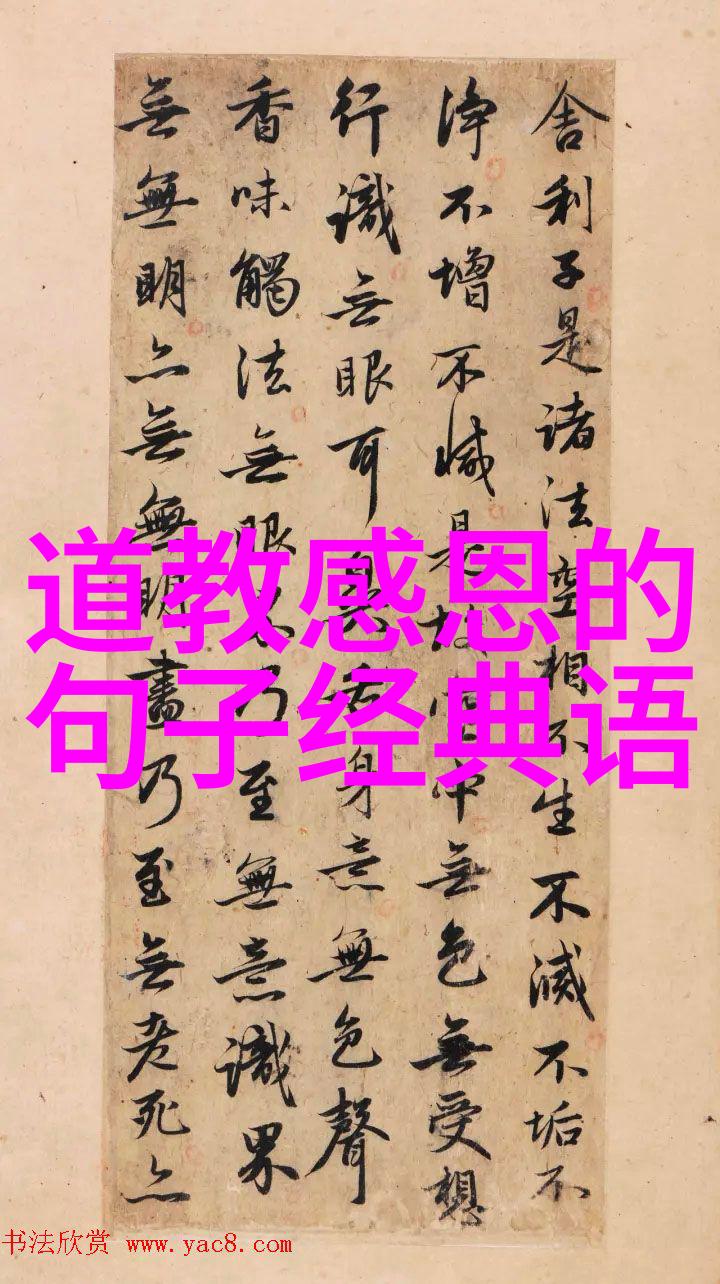 舍利子是諸法空相不生不滅不垢不
淨不增不減是故空中無色無受想
行識無眼耳鼻舌身意無色聲
香味觸法無眼界乃至無意識界
無無明亦無無明盡乃至無老死亦
道教感恩的
句子经典语
书法欣赏 www.yac8.com